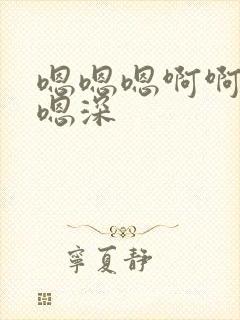 嗯嗯嗯啊啊
嗯深
寧夏靜